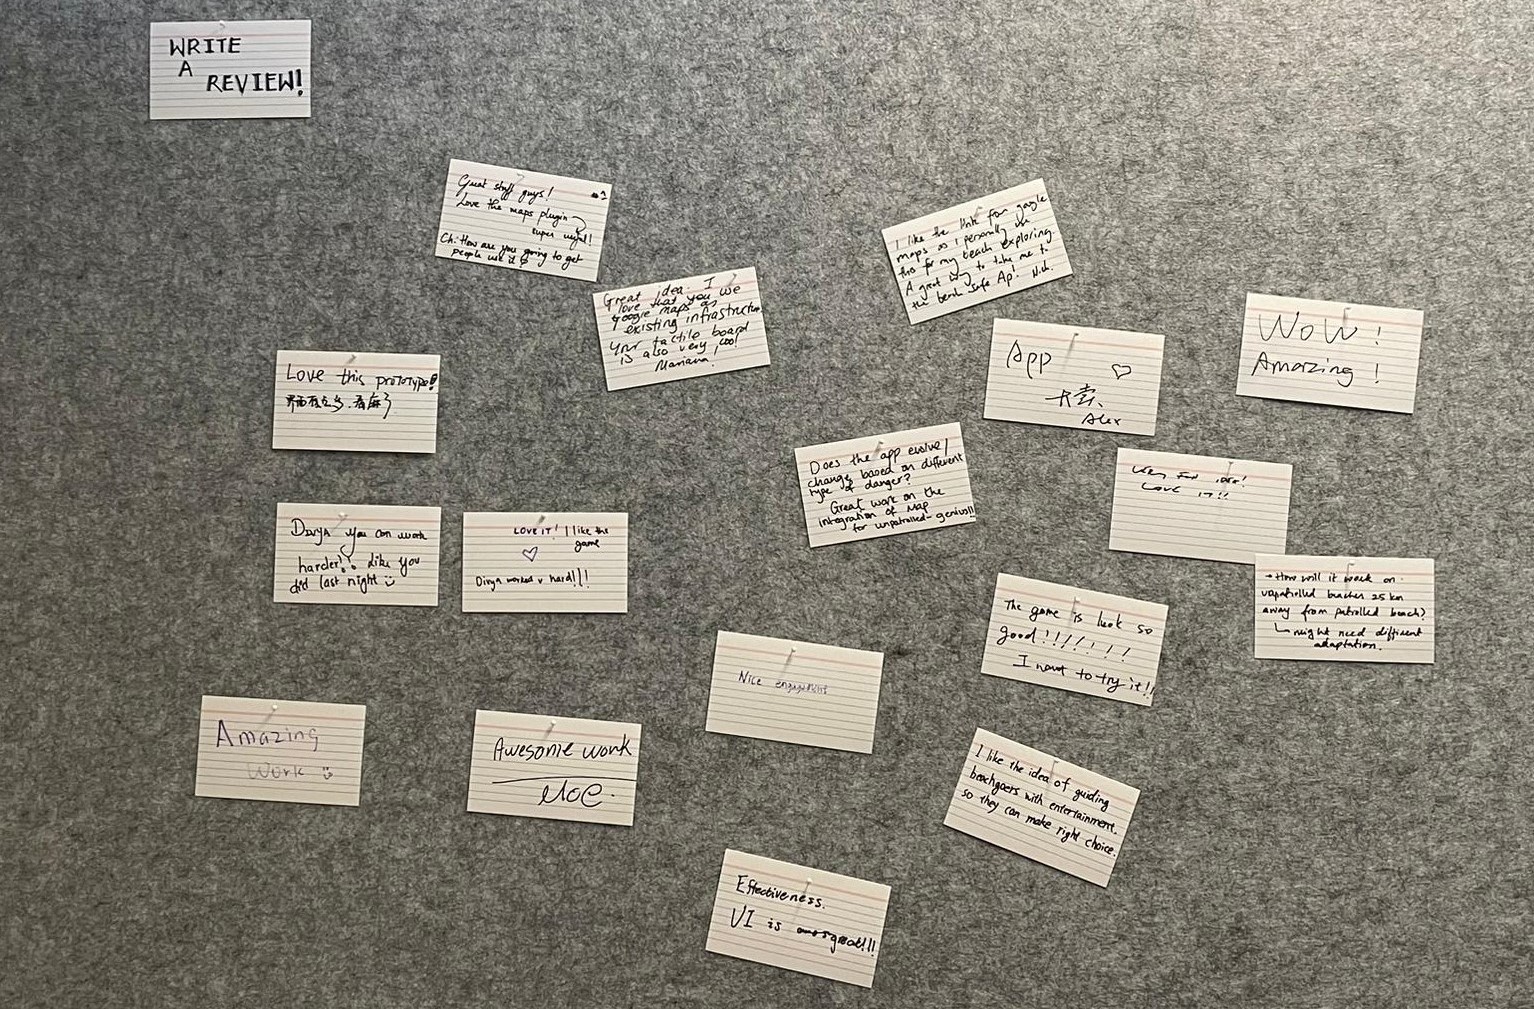 WRITE
A
REVIEW!
Great stuff guys!
Love the maps plugin
super useful!
How are you going to get
people use it?
Great idea. I
love that you use
Google maps as
existing infrastructure
Your tactile board
is also very cool
Mariana
I like the link for google
maps as I personally use
this for my beach exploring.
A great way to take me to
the beach safe Ap! Nick
App ♡
Alex
WoW!
Amazing!
Love this prototype!
Does the app evolve/
change based on different
type of danger?
Great work on the
integration of Map
for unpatrolled-genius!!
idea!
Love it!!
Divya you can work
harder!! like you
did last night
LOVE IT! I like the
game
♡
Divya worked v hard!!!
→ How will it work on
unpatrolled beaches 25 km
away from patrolled beach?
↳ might need different
adaptation.
The game is look so
good!!!!!!!
I want to try it!!
Nice engagement
Amazing
Work
Awesome work
I like the idea of guiding
beachgoers with entertainment.
so they can make right choice.
Effectiveness.
UI is great!!!